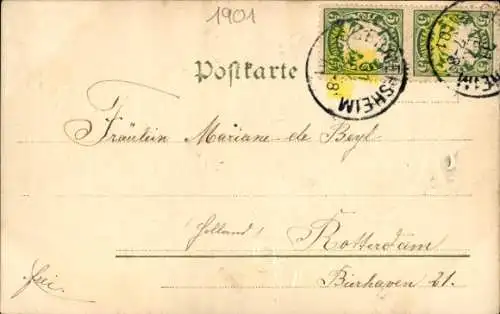 1901
Postkarte
Fräulein Mariane de Beyl
Holland/
Rotterdam
Bierhaven 21.
frei